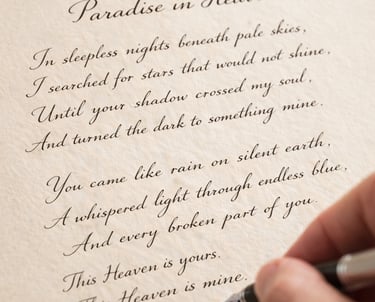 Paradise in
In sleepless nights beneath pale skies,
I searched for stars that would not shine,
Until your shadow crossed my soul,
And turned the dark to something mine.
You came like rain on silent earth,
A whispered light through endless blue,
And every broken part of you.
This Heaven is yours.
This Heaven is mine.